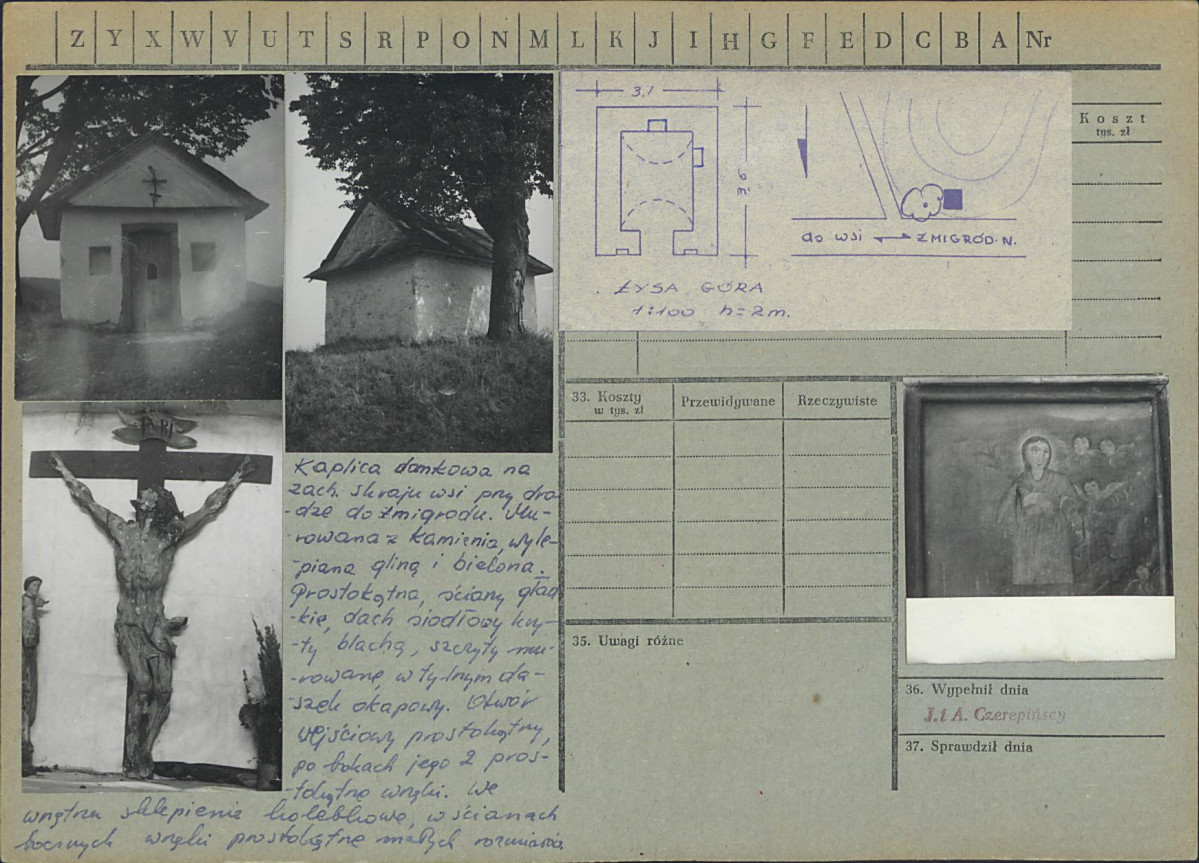 Z Y X W V U T S R P O N M L K J I H G F E D C B A Nr
3,1
3,6
do wsi ŻMIGRÓD-N.
ŁYSA GÓRA
1:100 h=2m.
Koszt
tys. zł
INRI
Kaplica domkowa na
zach. skraju wsi przy dro-
-dze do Żmigrodu. Mu-
-rowana z kamienia, wyle-
-piana gliną i bielona.
Prostokątna, ściany gład-
-kie, dach siodłowy kry-
-ty blachą, szczyty mu-
-rowane, w tylnym da-
-szek okapowy. Otwór
wejściowy prostokątny,
po bokach jego 2 pros-
-tokątne wnęki. We
wnętrzu sklepienie kolebkowe, w ścianach
bocznych wnęki prostokątne małych rozmiarów.
33. Koszty
w tys. zł
Przewidywane
Rzeczywiste
35. Uwagi różne
36. Wypełnił dnia
J. i A. Czerepińscy
37. Sprawdził dnia